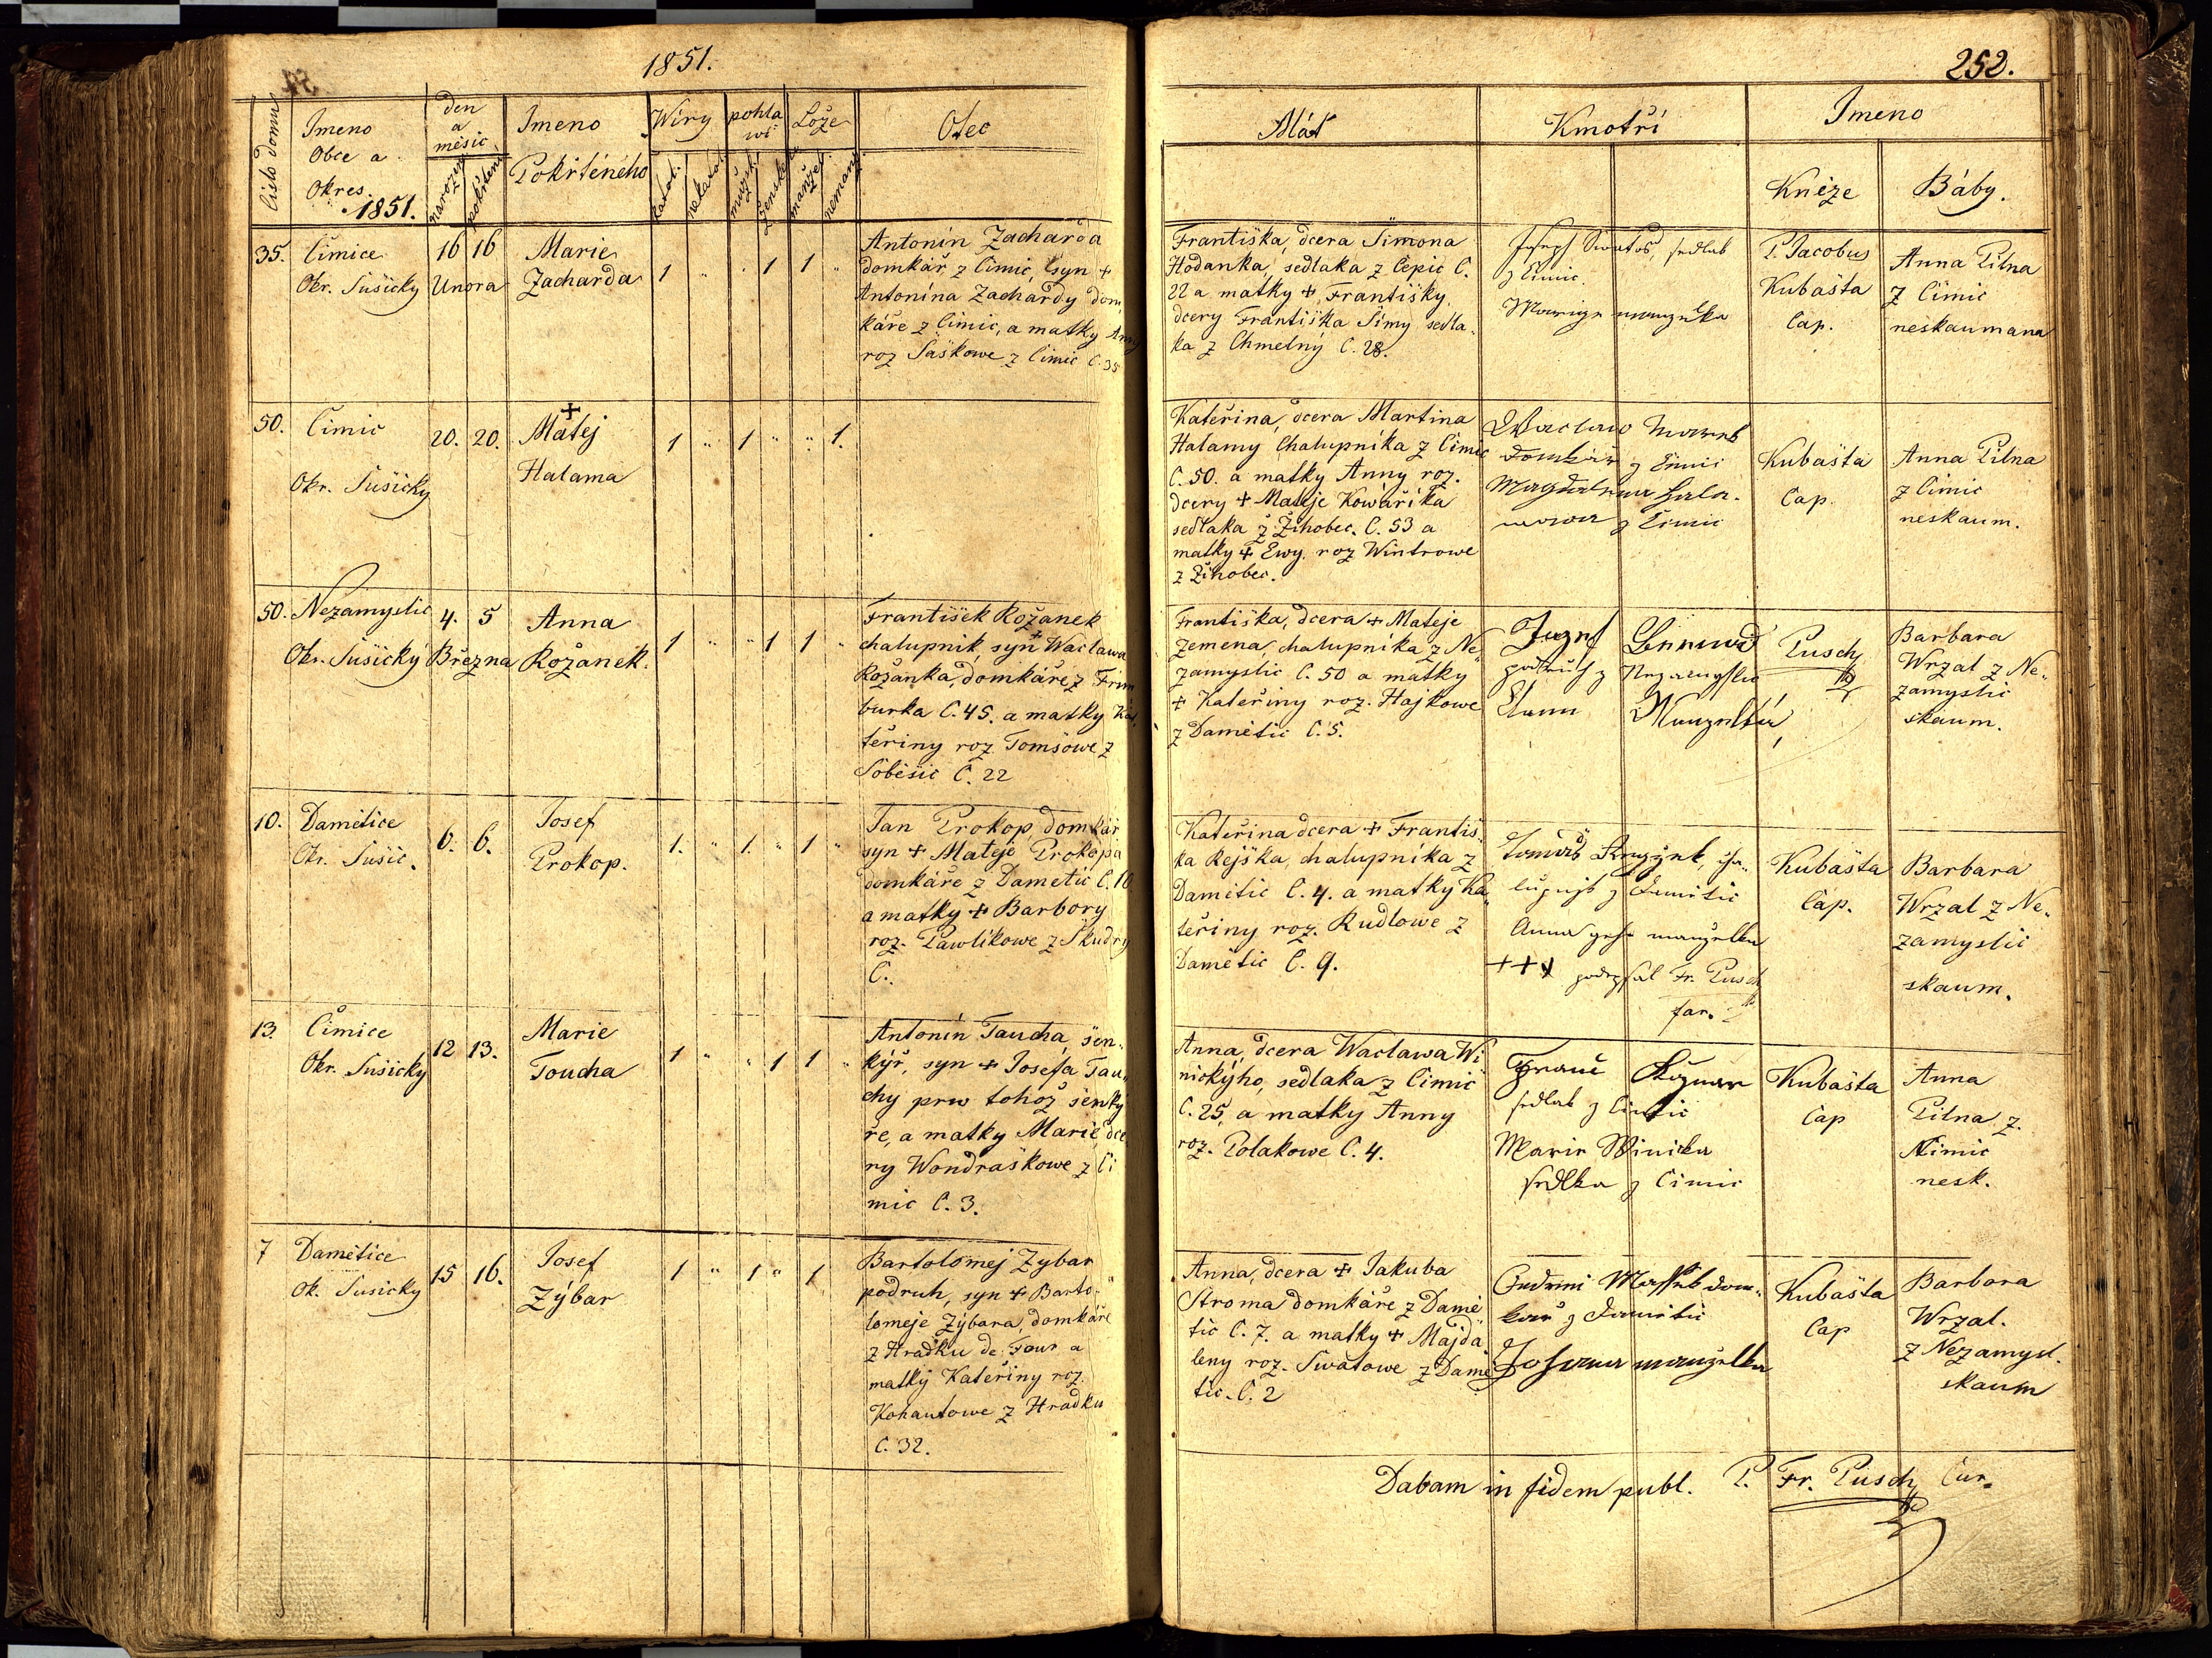 1851.
252.
číslo domu
Imeno
Obce a
Okres
1851.
den
a
měsíc
narození
pokřtení
Imeno
Pokřteného
Wíry
katol.
nekatol.
pohla
wí
mužsk.
ženské
Lože
manžel.
nemanž.
Otec
Mát
Kmotři
Imeno
Kněze
Báby.
35.
Čimice
Okr. Sušicky
16 16
Unora
Marie
Zacharda
1 " " 1 1 "
Antonín Zacharda
domkář z Čimic, syn +
Antonína Zachardy dom
káře z Čimic, a matky Anny
roz Saškowe z Čimic Č. 35
Františka, dcera Šimona
Hodanka, sedlaka z Čepic Č.
22 a matky + Františky
dcery Františka Šimy sedla
ka z Chmelný Č. 28.
Joseph Swatoš, sedlak
z Čimic.
Marige manzelka
P. Jacobus
Kubašta
Cap.
Anna Pilna
z Čimic
neskaumana
50.
Čimic
Okr. Sušicky
20. 20.
+
Matej
Halama
1 " 1 " " 1.
Kateřina, dcera Martina
Halamy Chalupníka z Čimic
Č. 50. a matky Anny roz.
dcery + Mateje Kowaříka
sedlaka z Žihobec. Č. 53 a
matky + Ewy roz Wintrowe
z Žihobec.
Waclaw Marek
Domkář z Čimic
Magdalena Hala-
mowa z Čimic
Kubašta
Cap.
Anna Pilna
z Čimic
neskaum.
50.
Nezamyslic
Okr. Sušický
4. 5
Března
Anna
Rožanek.
1 " " 1 1 "
František Rožanek
chalupník, syn + Waclawa
Rožanka, domkáře z Frim
burka Č. 45. a matky Ka
teřiny roz. Tomšowe z
Soběšic Č. 22
Františka, dcera + Mateje
Zemena, chalupníka z Ne
zamyslic Č. 50 a matky
+ Kateřiny roz. Hajkowe
z Damětic Č. 5.
Jozef
podruh z Nezamyslic
Manzelka
Pusch
Barbara
Wrzal z Ne
zamyslic
skaum.
10.
Damětice
Okr. Sušic.
6. 6.
Josef
Prokop.
1. " 1. " 1 "
Jan Prokop, domkář
syn + Mateje Prokopa
domkáře z Dametic Č. 10
a matky + Barbory
roz. Pawlíkowe z Škudry
Č.
Kateřina dcera + Františ
ka Rejška, chalupníka z
Damětic Č. 4. a matky Ka
teřiny roz. Rudlowe z
Damětic Č. 9.
Tomáš
lupnik z Damětic
Anna geho manželka
+++ podepsal Fr. Pusch
far.
Kubašta
Cap.
Barbara
Wrzal z Ne
zamyslic
skaum.
13.
Čimice
Okr. Sušicky
12 13.
Marie
Toucha
1 " " 1 1 "
Antonín Taucha, šen
kýř, syn + Josefa Tau
chy prw tohož šenky
ře, a matky Marie dce
ry Wondraškowe z Či
mic Č. 3.
Anna, dcera Waclawa Wi
nickýho, sedlaka z Čimic
Č. 25, a matky Anny
roz. Polakowe Č. 4.
Franc
sedlak z Čimic
Marie Winicka
sedlka z Čimic
Kubašta
Cap
Anna
Pilna z
Čimic
nesk.
7
Damětice
Ok. Sušicky
15 16.
Josef
Zýbar
1 " 1 " 1
Bartolomej Zybar
podruh, syn + Barto-
lomeje Zýbara, domkáře
z Hradku de Four a
matký Kateřiny roz.
Kohautowe z Hradku
Č. 32.
Anna, dcera + Jakuba
Stroma domkáře z Damě
tic Č. 7. a matky + Majda
leny roz. Swatowe z Damě
tic. Č. 2
Mašek dom-
kař z Damětic
Johana manželka
Kubašta
Cap
Barbora
Wrzal.
z Nezamysl.
skaum
Dabam in fidem publ. P. Fr. Pusch Cur.